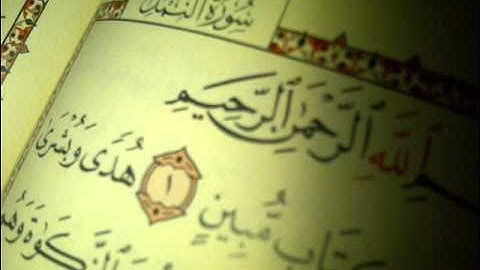 سُورَةُ النَّمْلِ
ٱللَّهِ ٱلرَّحْمَٰنِ ٱلرَّحِيمِ
كِتَابٍ مُّبِينٍ ١ هُدًى وَبُشْرَىٰ
ٱلزَّكَوٰةَ وَهُم